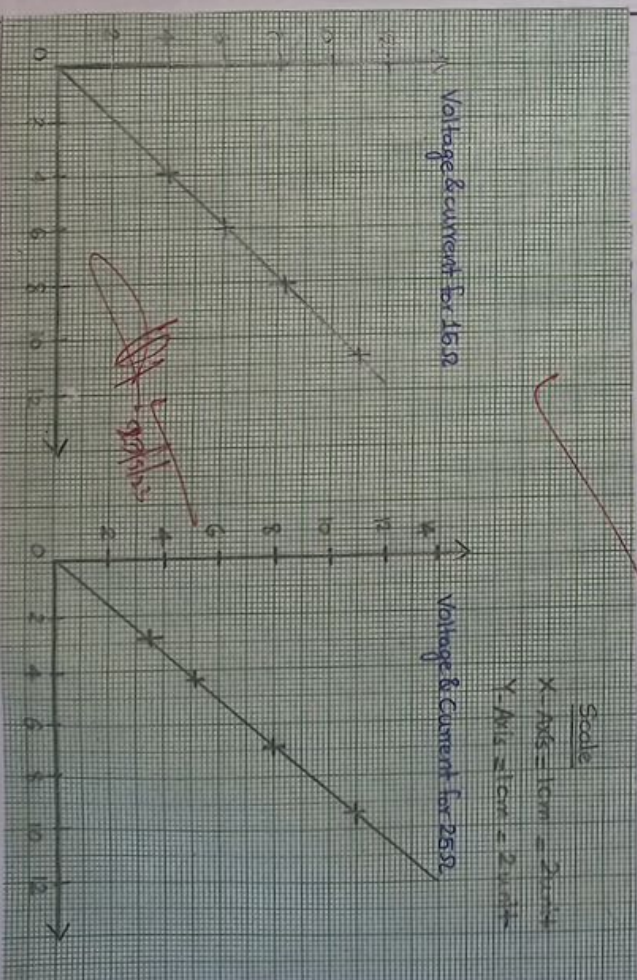 Scale
X-Axis = 1cm = 2unit
Y-Axis = 1cm = 2unit
Voltage & current for 15Ω
12
10
8
6
4
2
0
2
4
6
8
10
12
Voltage & Current for 25Ω
14
12
10
8
6
4
2
0
2
4
6
8
10
12